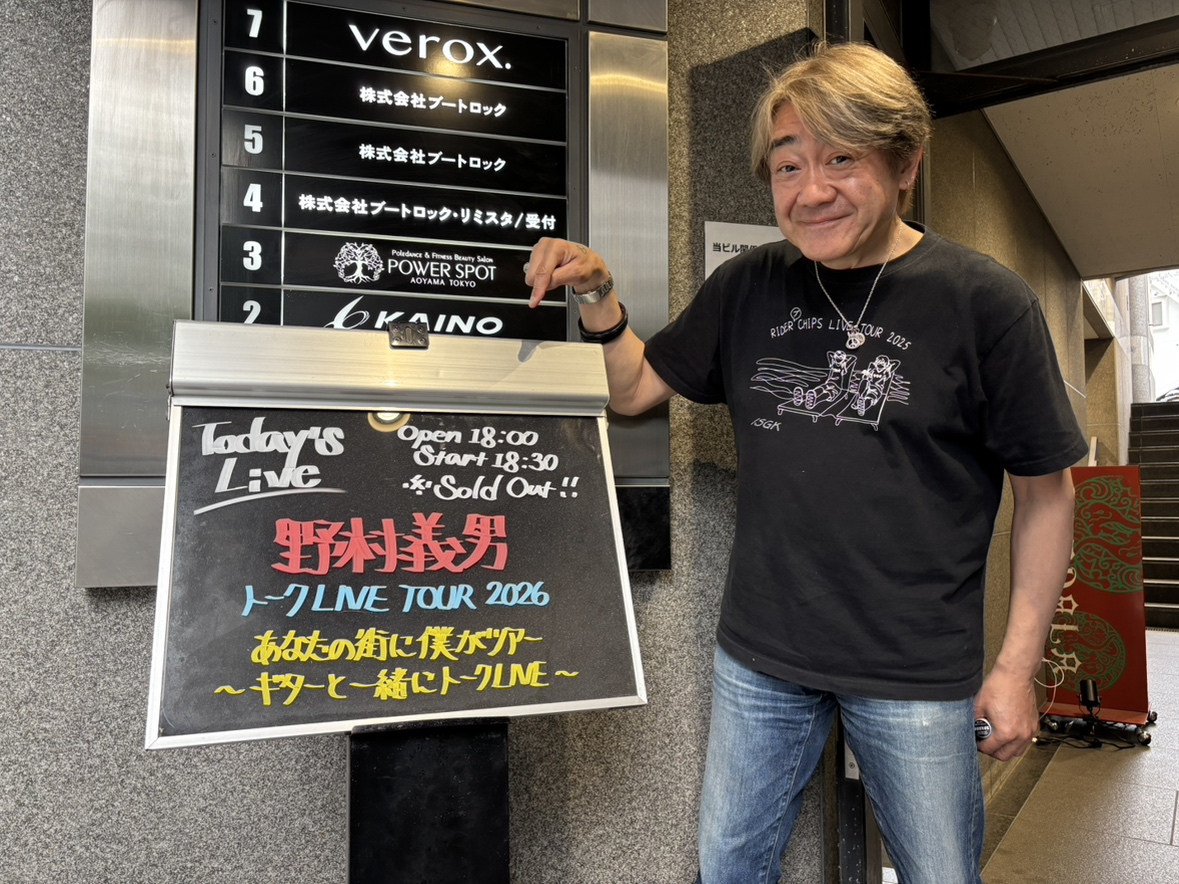 7 verox.
6 株式会社ブートロック
5 株式会社ブートロック
4 株式会社ブートロック・リミスタ/受付
3 Poledance & Fitness Beauty Salon
POWER SPOT
AOYAMA TOKYO
2 KAINO
当ビル関係
Today's
Live
Open 18:00
Start 18:30
※Sold Out!!
野村義男
トークLIVE TOUR 2026
あなたの街に僕がツアー
～ギターと一緒にトークLIVE～
RIDER CHIPS LIVE TOUR 2025